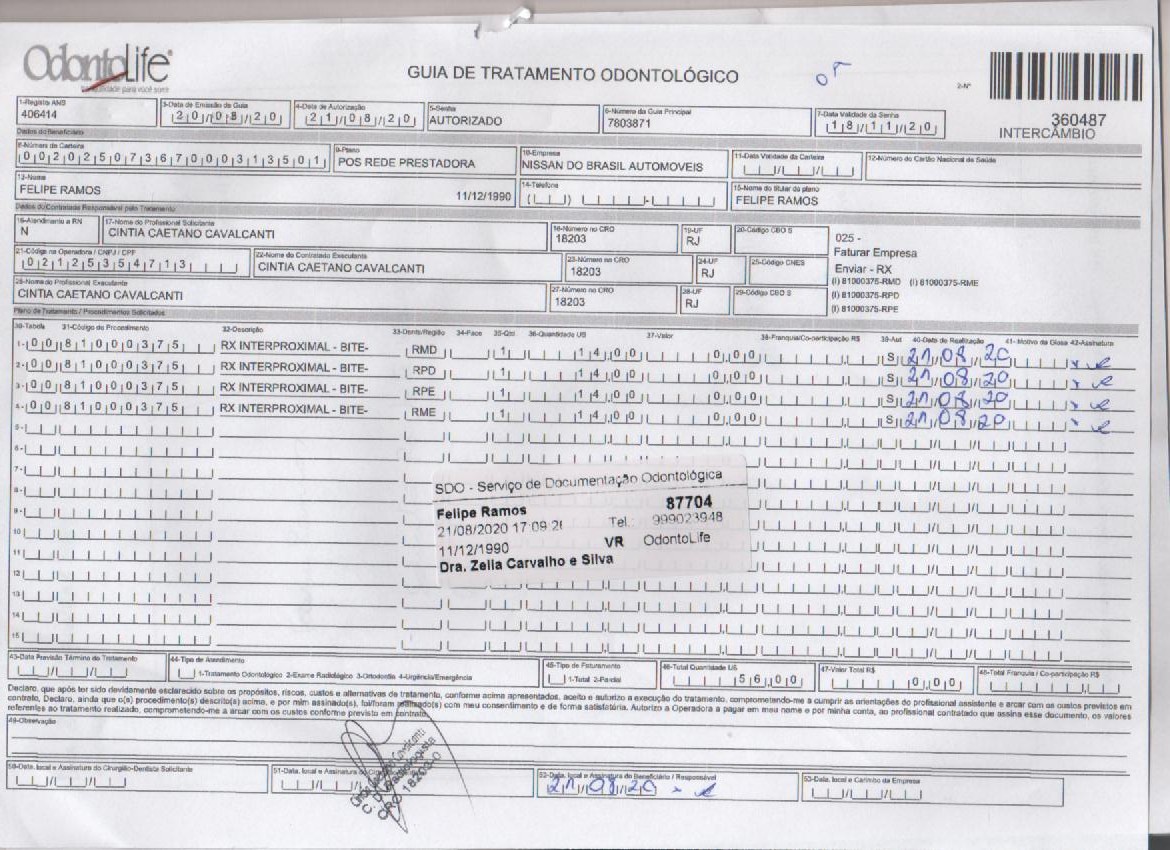 OdontoLife®
GUIA DE TRATAMENTO ODONTOLÓGICO
2-Nº
360487
INTERCÂMBIO
1-Registro ANS
406414
3-Data de Emissão da Guia
20/08/20
4-Data de Autorização
21/08/20
5-Senha
AUTORIZADO
6-Número da Guia Principal
7803871
7-Data Validade da Senha
18/11/20
Dados do Beneficiário
8-Número da Carteira
00202507367000313501
9-Plano
POS REDE PRESTADORA
10-Empresa
NISSAN DO BRASIL AUTOMOVEIS
11-Data Validade da Carteira
12-Número do Cartão Nacional de Saúde
13-Nome
FELIPE RAMOS 11/12/1990
14-Telefone
15-Nome do titular do plano
FELIPE RAMOS
Dados do Contratado Responsável pelo Tratamento
16-Atendimento a RN
N
17-Nome do Profissional Solicitante
CINTIA CAETANO CAVALCANTI
18-Número no CRO
18203
19-UF
RJ
20-Código CBO S
21-Código na Operadora / CNPJ / CPF
02125354713
22-Nome do Contratado Executante
CINTIA CAETANO CAVALCANTI
23-Número no CRO
18203
24-UF
RJ
25-Código CNES
26-Nome do Profissional Executante
CINTIA CAETANO CAVALCANTI
27-Número no CRO
18203
28-UF
RJ
29-Código CBO S
025 -
Faturar Empresa
Enviar - RX
(I) 81000375-RMD (I) 81000375-RME
(I) 81000375-RPD
(I) 81000375-RPE
Plano de Tratamento / Procedimentos Solicitados
30-Tabela 31-Código do Procedimento 32-Descrição 33-Dente/Região 34-Face 35-Qtd 36-Quantidade US 37-Valor 38-Franquia/Co-participação R$ 39-Aut 40-Data de Realização 41-Motivo da Glosa 42-Assinatura
1- 00 81000375 RX INTERPROXIMAL - BITE- RMD 1 14,00 0,00 S 21/08/20
2- 00 81000375 RX INTERPROXIMAL - BITE- RPD 1 14,00 0,00 S 21/08/20
3- 00 81000375 RX INTERPROXIMAL - BITE- RPE 1 14,00 0,00 S 21/08/20
4- 00 81000375 RX INTERPROXIMAL - BITE- RME 1 14,00 0,00 S 21/08/20
5-
6-
7-
8-
9-
10
11
12
13
14
15
SDO - Serviço de Documentação Odontológica
Felipe Ramos 87704
21/08/2020 17:09:26 Tel.: 999023948
11/12/1990 VR OdontoLife
Dra. Zelia Carvalho e Silva
43-Data Previsão Término do Tratamento
44-Tipo de Atendimento
1-Tratamento Odontológico 2-Exame Radiológico 3-Ortodontia 4-Urgência/Emergência
45-Tipo de Faturamento
1-Total 2-Parcial
46-Total Quantidade US
56,00
47-Valor Total R$
0,00
48-Total Franquia / Co-participação R$
Declaro, que após ter sido devidamente esclarecido sobre os propósitos, riscos, custos e alternativas de tratamento, conforme acima apresentados, aceito e autorizo a execução do tratamento, comprometendo-me a cumprir as orientações do profissional assistente e arcar com os custos previstos em
contrato, Declaro, ainda que o(s) procedimento(s) descrito(s) acima, e por mim assinado(s), foi/foram realizado(s) com meu consentimento e de forma satisfatória. Autorizo a Operadora a pagar em meu nome e por minha conta, ao profissional contratado que assina esse documento, os valores
referentes ao tratamento realizado, comprometendo-me a arcar com os custos conforme previsto em contrato
49-Observação
50-Data, local e Assinatura do Cirurgião-Dentista Solicitante
51-Data, local e Assinatura do
CRO 18203
52-Data, local e Assinatura do Beneficiário / Responsável
21/08/20
53-Data, local e Carimbo da Empresa